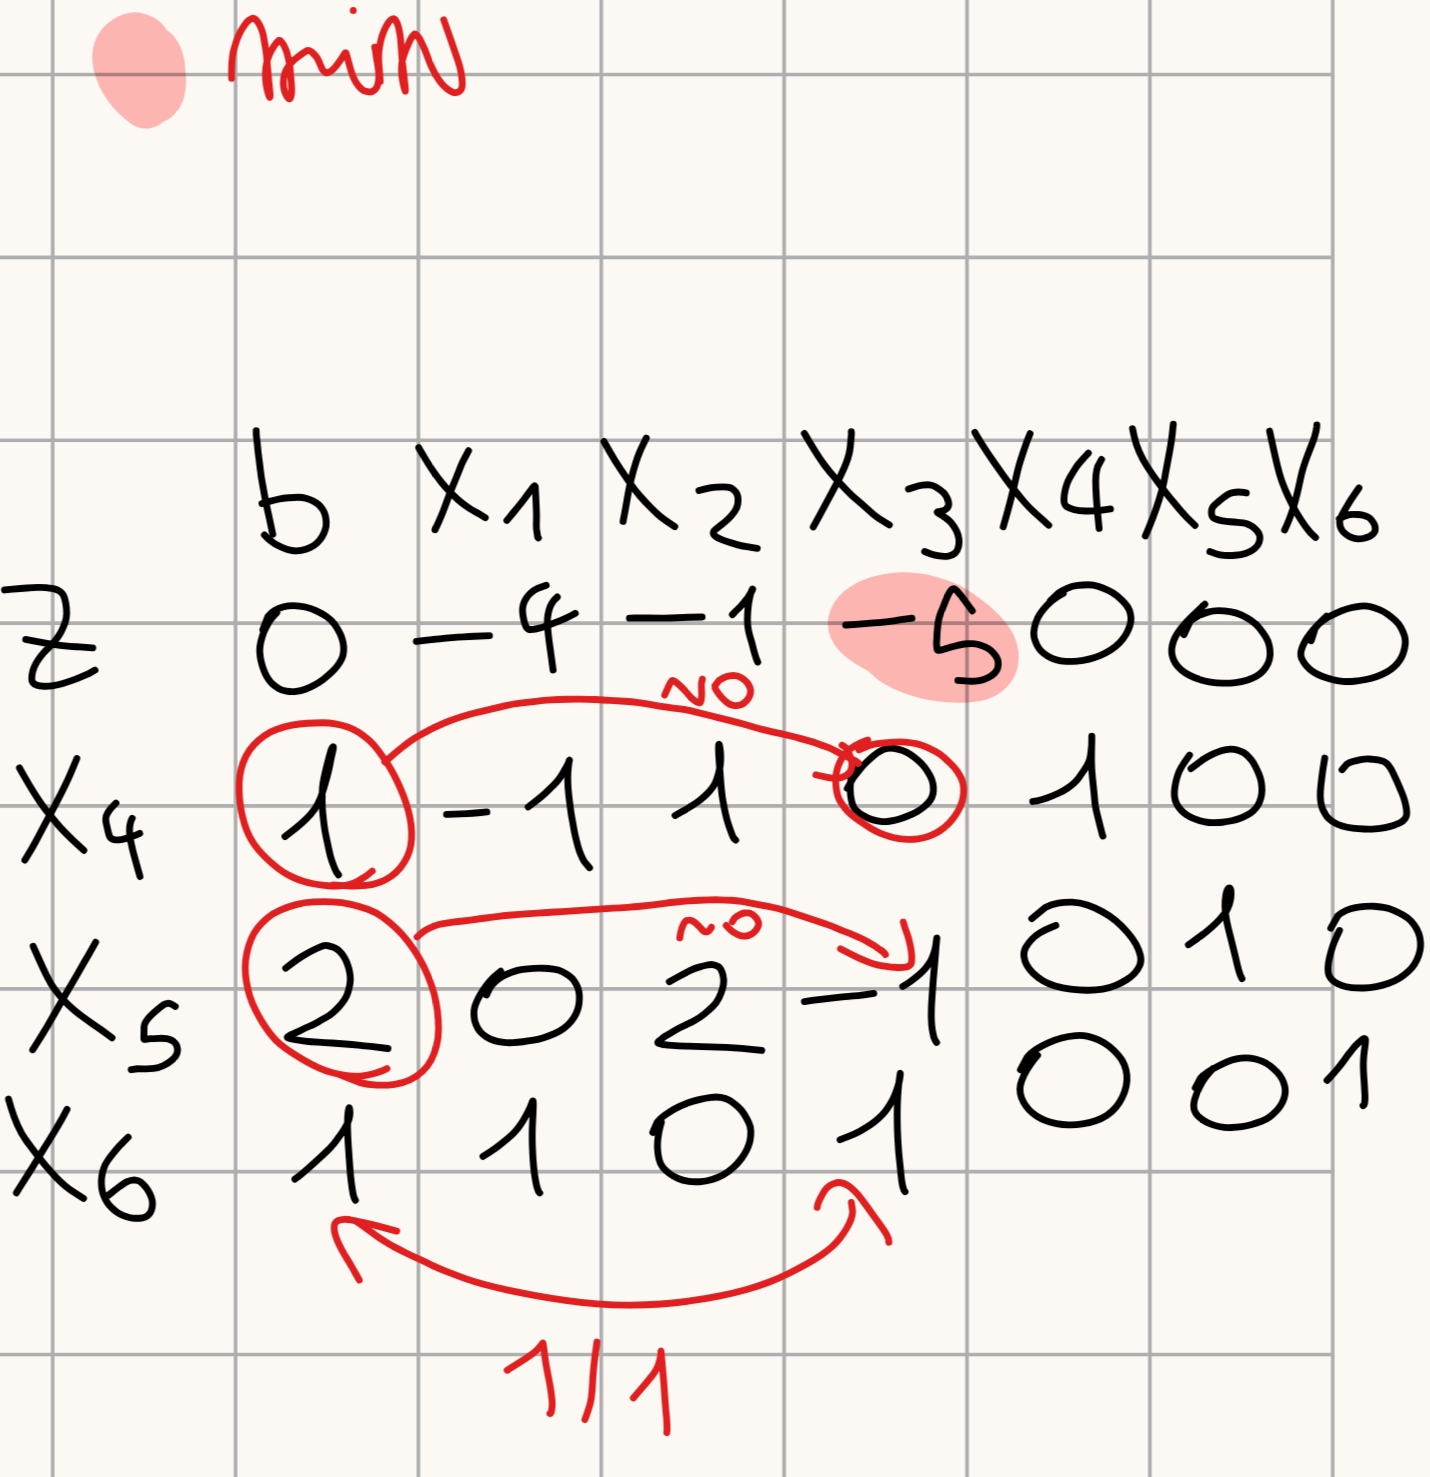 min
b X1 X2 X3 X4 X5 X6
Z 0 -4 -1 -5 0 0 0
NO
X4 1 -1 1 0 1 0 0
NO
X5 2 0 2 -1 0 1 0
X6 1 1 0 1 0 0 1
1/1